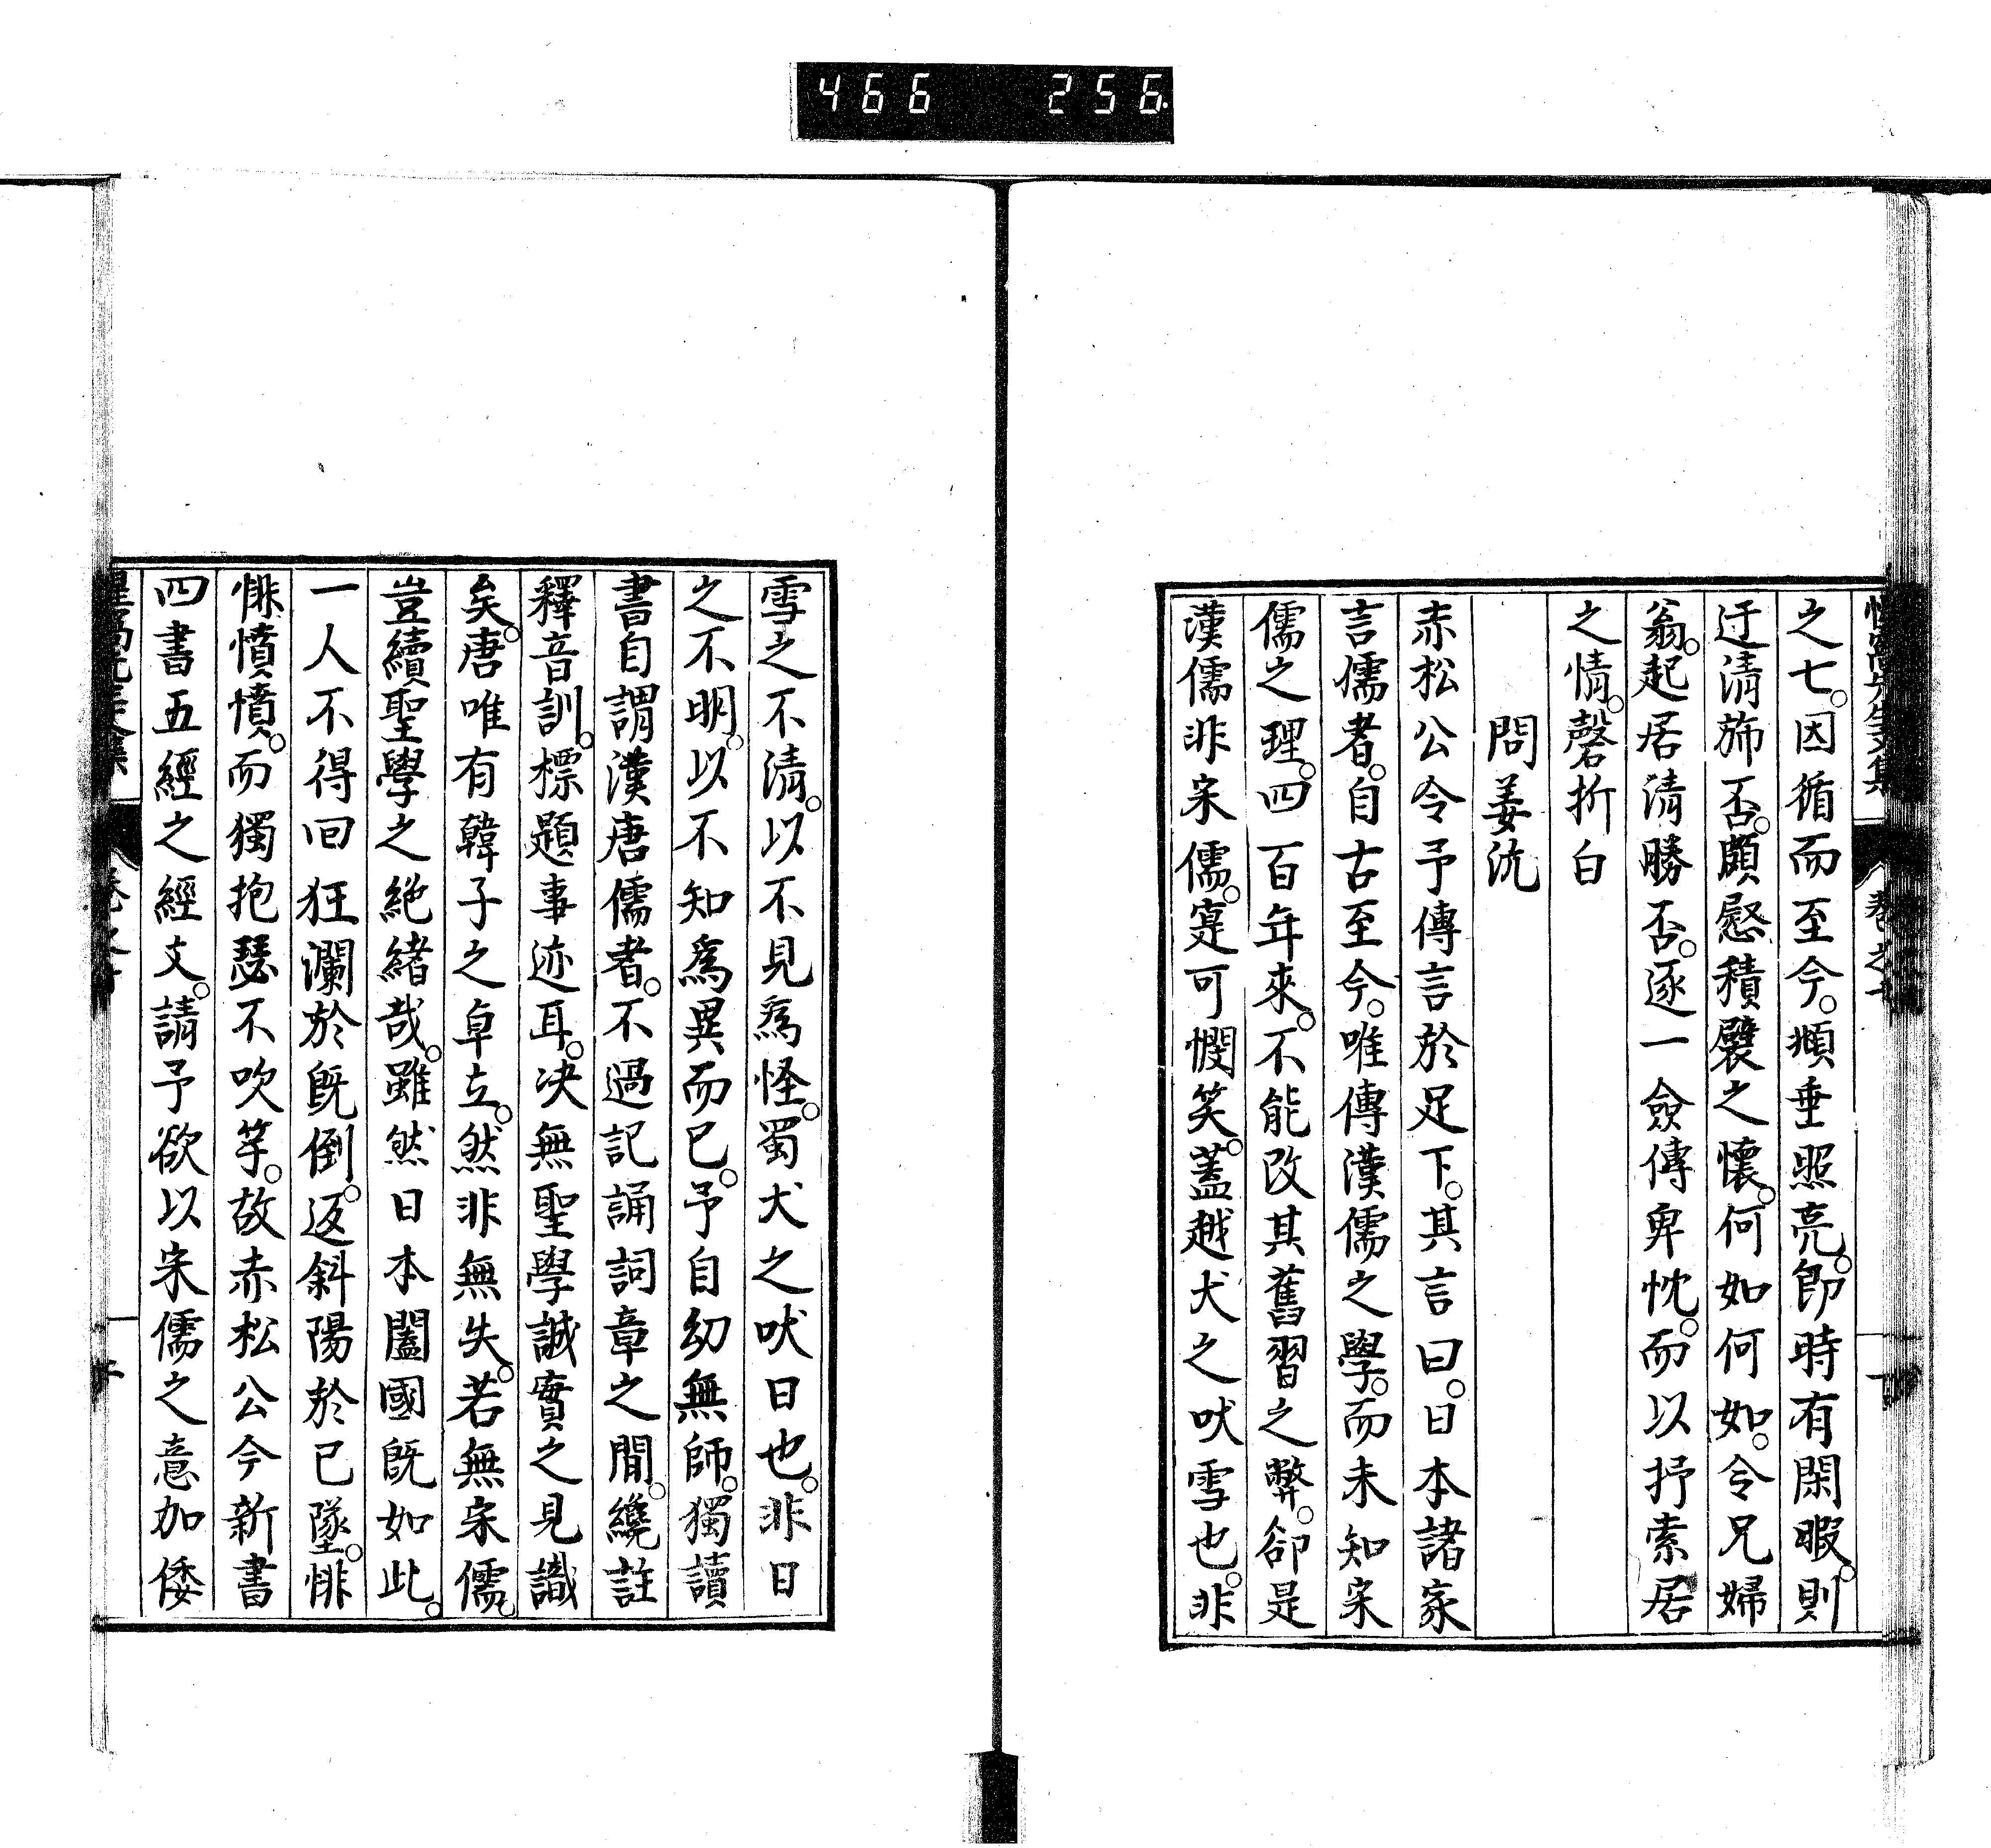 466 256
惺窩先生文集 卷之十
之七。因循而至今。順垂照亮。卽時有閑暇。則
迂淸斾否。頗慰積襞之懷。何如何如。令兄婦
翁。起居淸勝否。逐一僉傳卑忱。而以抒索居
之情。磬折白
問姜沆
赤松公令予傳言於足下。其言曰。日本諸家
言儒者。自古至今。唯傳漢儒之學。而未知宋
儒之理。四百年來。不能改其舊習之弊。卻是
漢儒非宋儒。寔可憫笑。蓋越犬之吠雪也。非
雪之不淸。以不見爲怪。蜀犬之吠日也。非日
之不明。以不知爲異而已。予自幼無師。獨讀
書自謂漢唐儒者。不過記誦詞章之間。纔註
釋音訓。標題事迹耳。决無聖學誠實之見識
矣。唐唯有韓子之卓立。然非無失。若無宋儒。
豈續聖學之絶緖哉。雖然日本闔國旣如此。
一人不得回狂瀾於旣倒。返斜陽於已墜。悱
悱憤憤。而獨抱瑟不吹竽。故赤松公今新書
四書五經之經文。請予欲以宋儒之意加倭